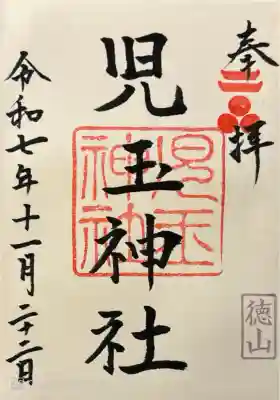 奉拝
徳山
児玉神社
児玉神社
令和七年十一月二十二日